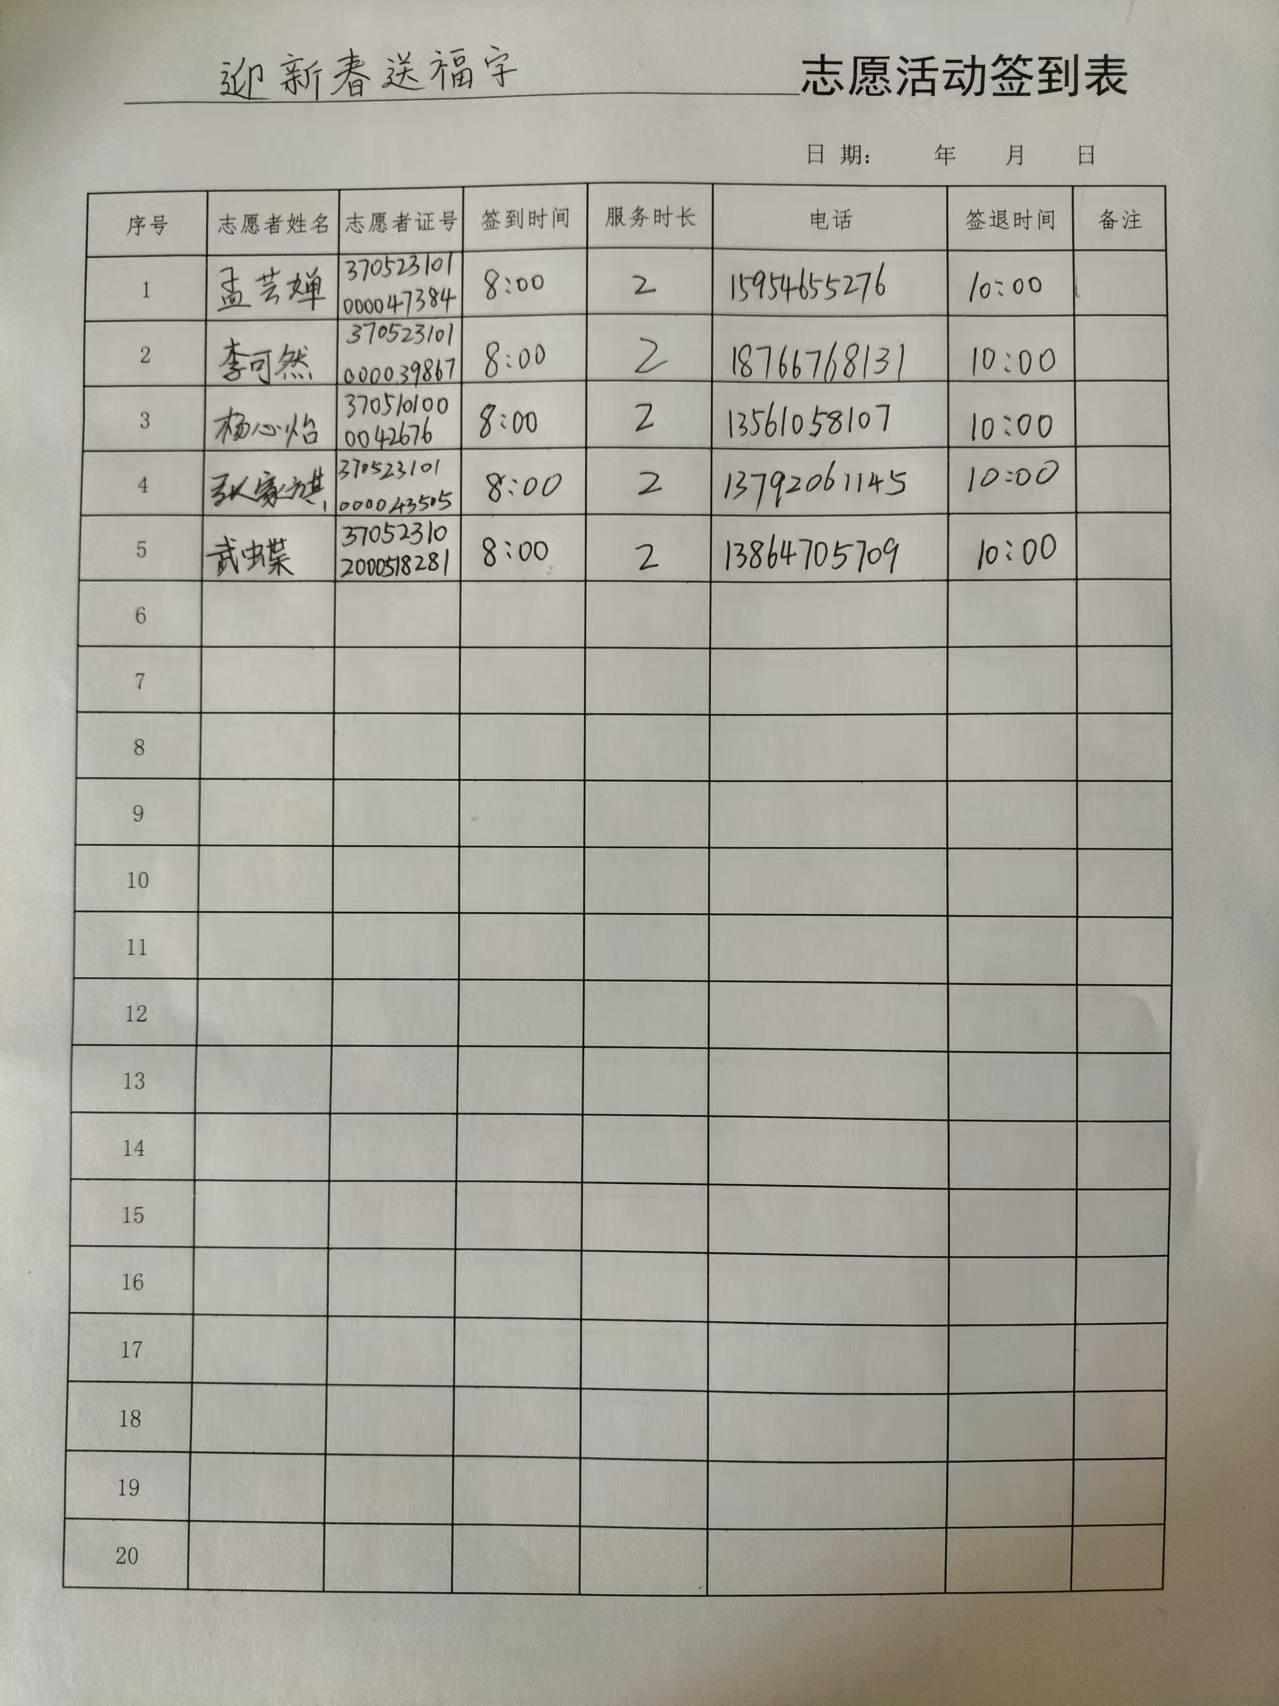 迎新春送福字 志愿活动签到表
日 期： 年 月 日
序号 志愿者姓名 志愿者证号 签到时间 服务时长 电话 签退时间 备注
1 孟芸婵 370523101 8:00 2 15954655276 10:00
000047384
2 李可然 370523101 8:00 2 18766768131 10:00
000039867
3 杨心怡 370510100 8:00 2 13561058107 10:00
0042676
4 张家祺 370523101 8:00 2 13792061145 10:00
000043505
5 武虫蝶 37052310 8:00 2 13864705709 10:00
2000518281
6
7
8
9
10
11
12
13
14
15
16
17
18
19
20